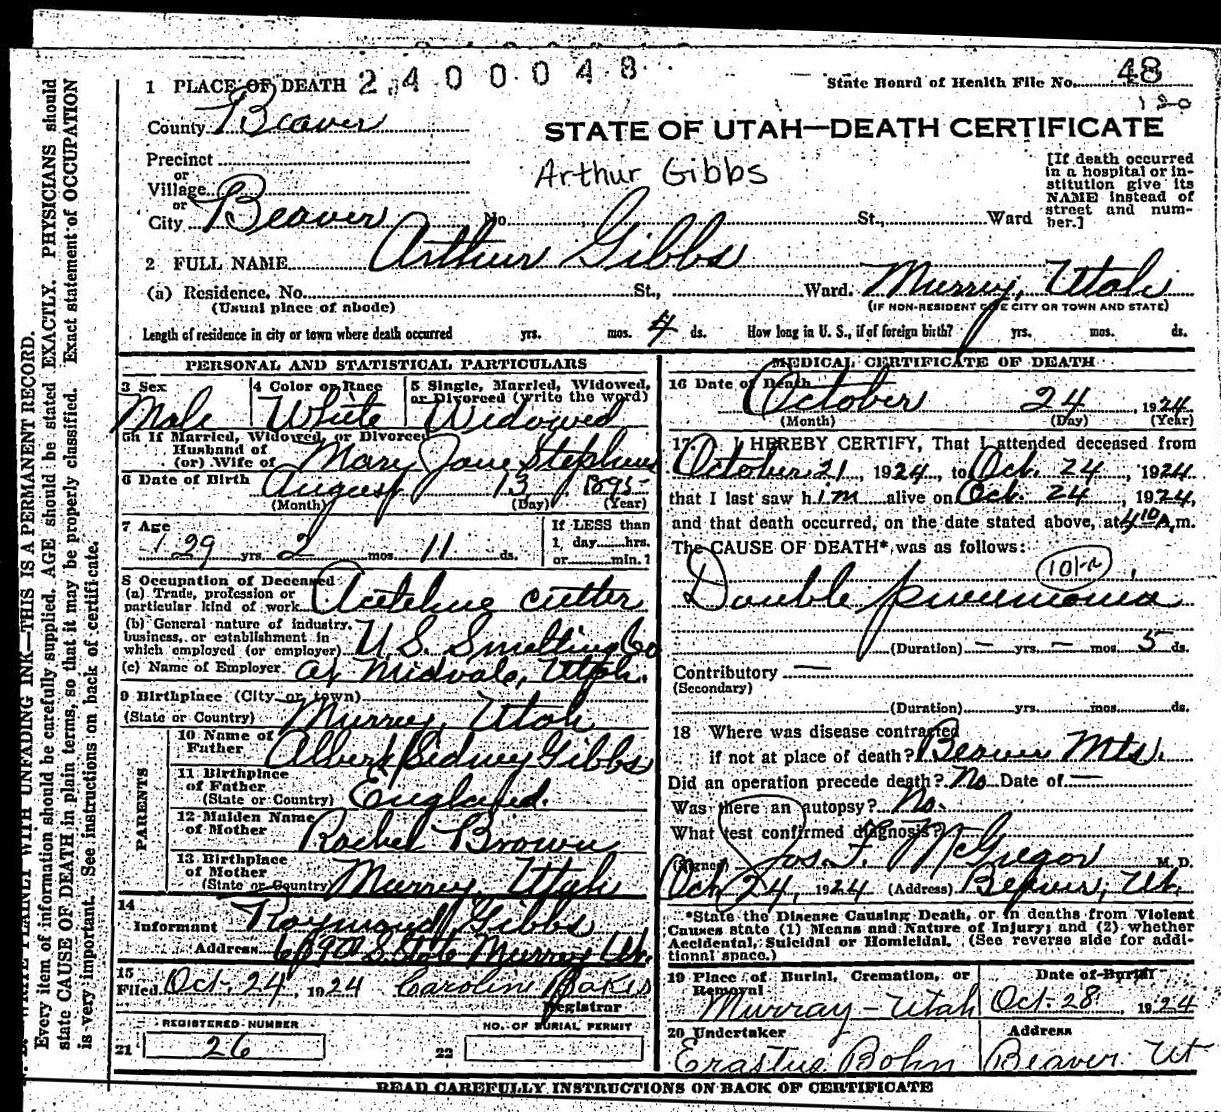 2400048
State Board of Health File No. 48
120
1 PLACE OF DEATH
County Beaver
STATE OF UTAH—DEATH CERTIFICATE
Precinct
or
Village
or
City Beaver No. St., Ward
Arthur Gibbs
[If death occurred
in a hospital or in-
stitution give its
NAME instead of
street and num-
ber.]
2 FULL NAME Arthur Gibbs
(a) Residence, No. St., Ward. Murray, Utah
(Usual place of abode)
(IF NON-RESIDENT GIVE CITY OR TOWN AND STATE)
Length of residence in city or town where death occurred yrs. mos. 4 ds. How long in U. S., if of foreign birth? yrs. mos. ds.
PERSONAL AND STATISTICAL PARTICULARS
3 Sex
Male
4 Color or Race
White
5 Single, Married, Widowed,
or Divorced (write the word)
Widowed
5a If Married, Widowed, or Divorced
Husband of
(or) Wife of Mary Jane Stephens
6 Date of Birth August 13, 1895
(Month) (Day) (Year)
7 Age
29 yrs. 2 mos. 11 ds.
If LESS than
1 day hrs.
or min.?
8 Occupation of Deceased
(a) Trade, profession or
particular kind of work Aceteline cutter
(b) General nature of industry,
business, or establishment in
which employed (or employer) U.S. Smelting Co
(c) Name of Employer at Midvale, Utah.
9 Birthplace (City or town)
(State or Country) Murray, Utah
PARENTS
10 Name of
Father Albert Sidney Gibbs
11 Birthplace
of Father
(State or Country) England.
12 Maiden Name
of Mother Rachel Brown
13 Birthplace
of Mother
(State or Country) Murray, Utah
14
Informant Raymond Gibbs
Address S. State Murray Ut.
15
Filed Oct. 24, 1924 Caroline
Registrar
REGISTERED NUMBER
21 26
NO. OF BURIAL PERMIT
22
MEDICAL CERTIFICATE OF DEATH
16 Date of Death
October 24, 1924
(Month) (Day) (Year)
17. I HEREBY CERTIFY, That I attended deceased from
October 21, 1924, to Oct. 24, 1924
that I last saw him alive on Oct. 24, 1924,
and that death occurred, on the date stated above, at 4 10 A. m.
The CAUSE OF DEATH* was as follows:
Double pneumonia
(Duration) — yrs. — mos. 5 ds.
Contributory —
(Secondary)
(Duration) yrs. mos. ds.
18 Where was disease contracted
if not at place of death? Beaver Mts.
Did an operation precede death? No Date of —
Was there an autopsy? No.
What test confirmed diagnosis?
(Signed) Jos. F. McGregor M. D.
Oct. 24, 1924 (Address) Beaver, Ut.
*State the Disease Causing Death, or in deaths from Violent
Causes state (1) Means and Nature of Injury; and (2) whether
Accidental, Suicidal or Homicidal. (See reverse side for addi-
tional space.)
19 Place of Burial, Cremation, or
Removal
Murray – Utah
Date of Burial
Oct. 28, 1924
20 Undertaker
Erastus Bohn
Address
Beaver Ut
READ CAREFULLY INSTRUCTIONS ON BACK OF CERTIFICATE
WRITE PLAINLY WITH UNFADING INK—THIS IS A PERMANENT RECORD.
Every item of information should be carefully supplied. AGE should be stated EXACTLY. PHYSICIANS should
state CAUSE OF DEATH in plain terms, so that it may be properly classified. Exact statement of OCCUPATION
is very important. See instructions on back of certificate.